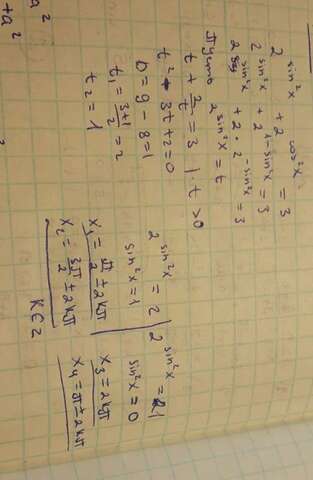 2^(sin²x) + 2^(cos²x) = 3
2^(sin²x) + 2^(1-sin²x) = 3
2^(sin²x) + 2 · 2^(-sin²x) = 3
Пусть 2^(sin²x) = t
t + 2/t = 3 | · t > 0
t² - 3t + 2 = 0
D = 9 - 8 = 1
t₁ = (3+1)/2 = 2
t₂ = 1
2^(sin²x) = 2
sin²x = 1
x₁ = π/2 ± 2kπ
x₂ = 3π/2 ± 2kπ
2^(sin²x) = 1
sin²x = 0
x₃ = 2kπ
x₄ = π ± 2kπ
k∈z
a²
+a²